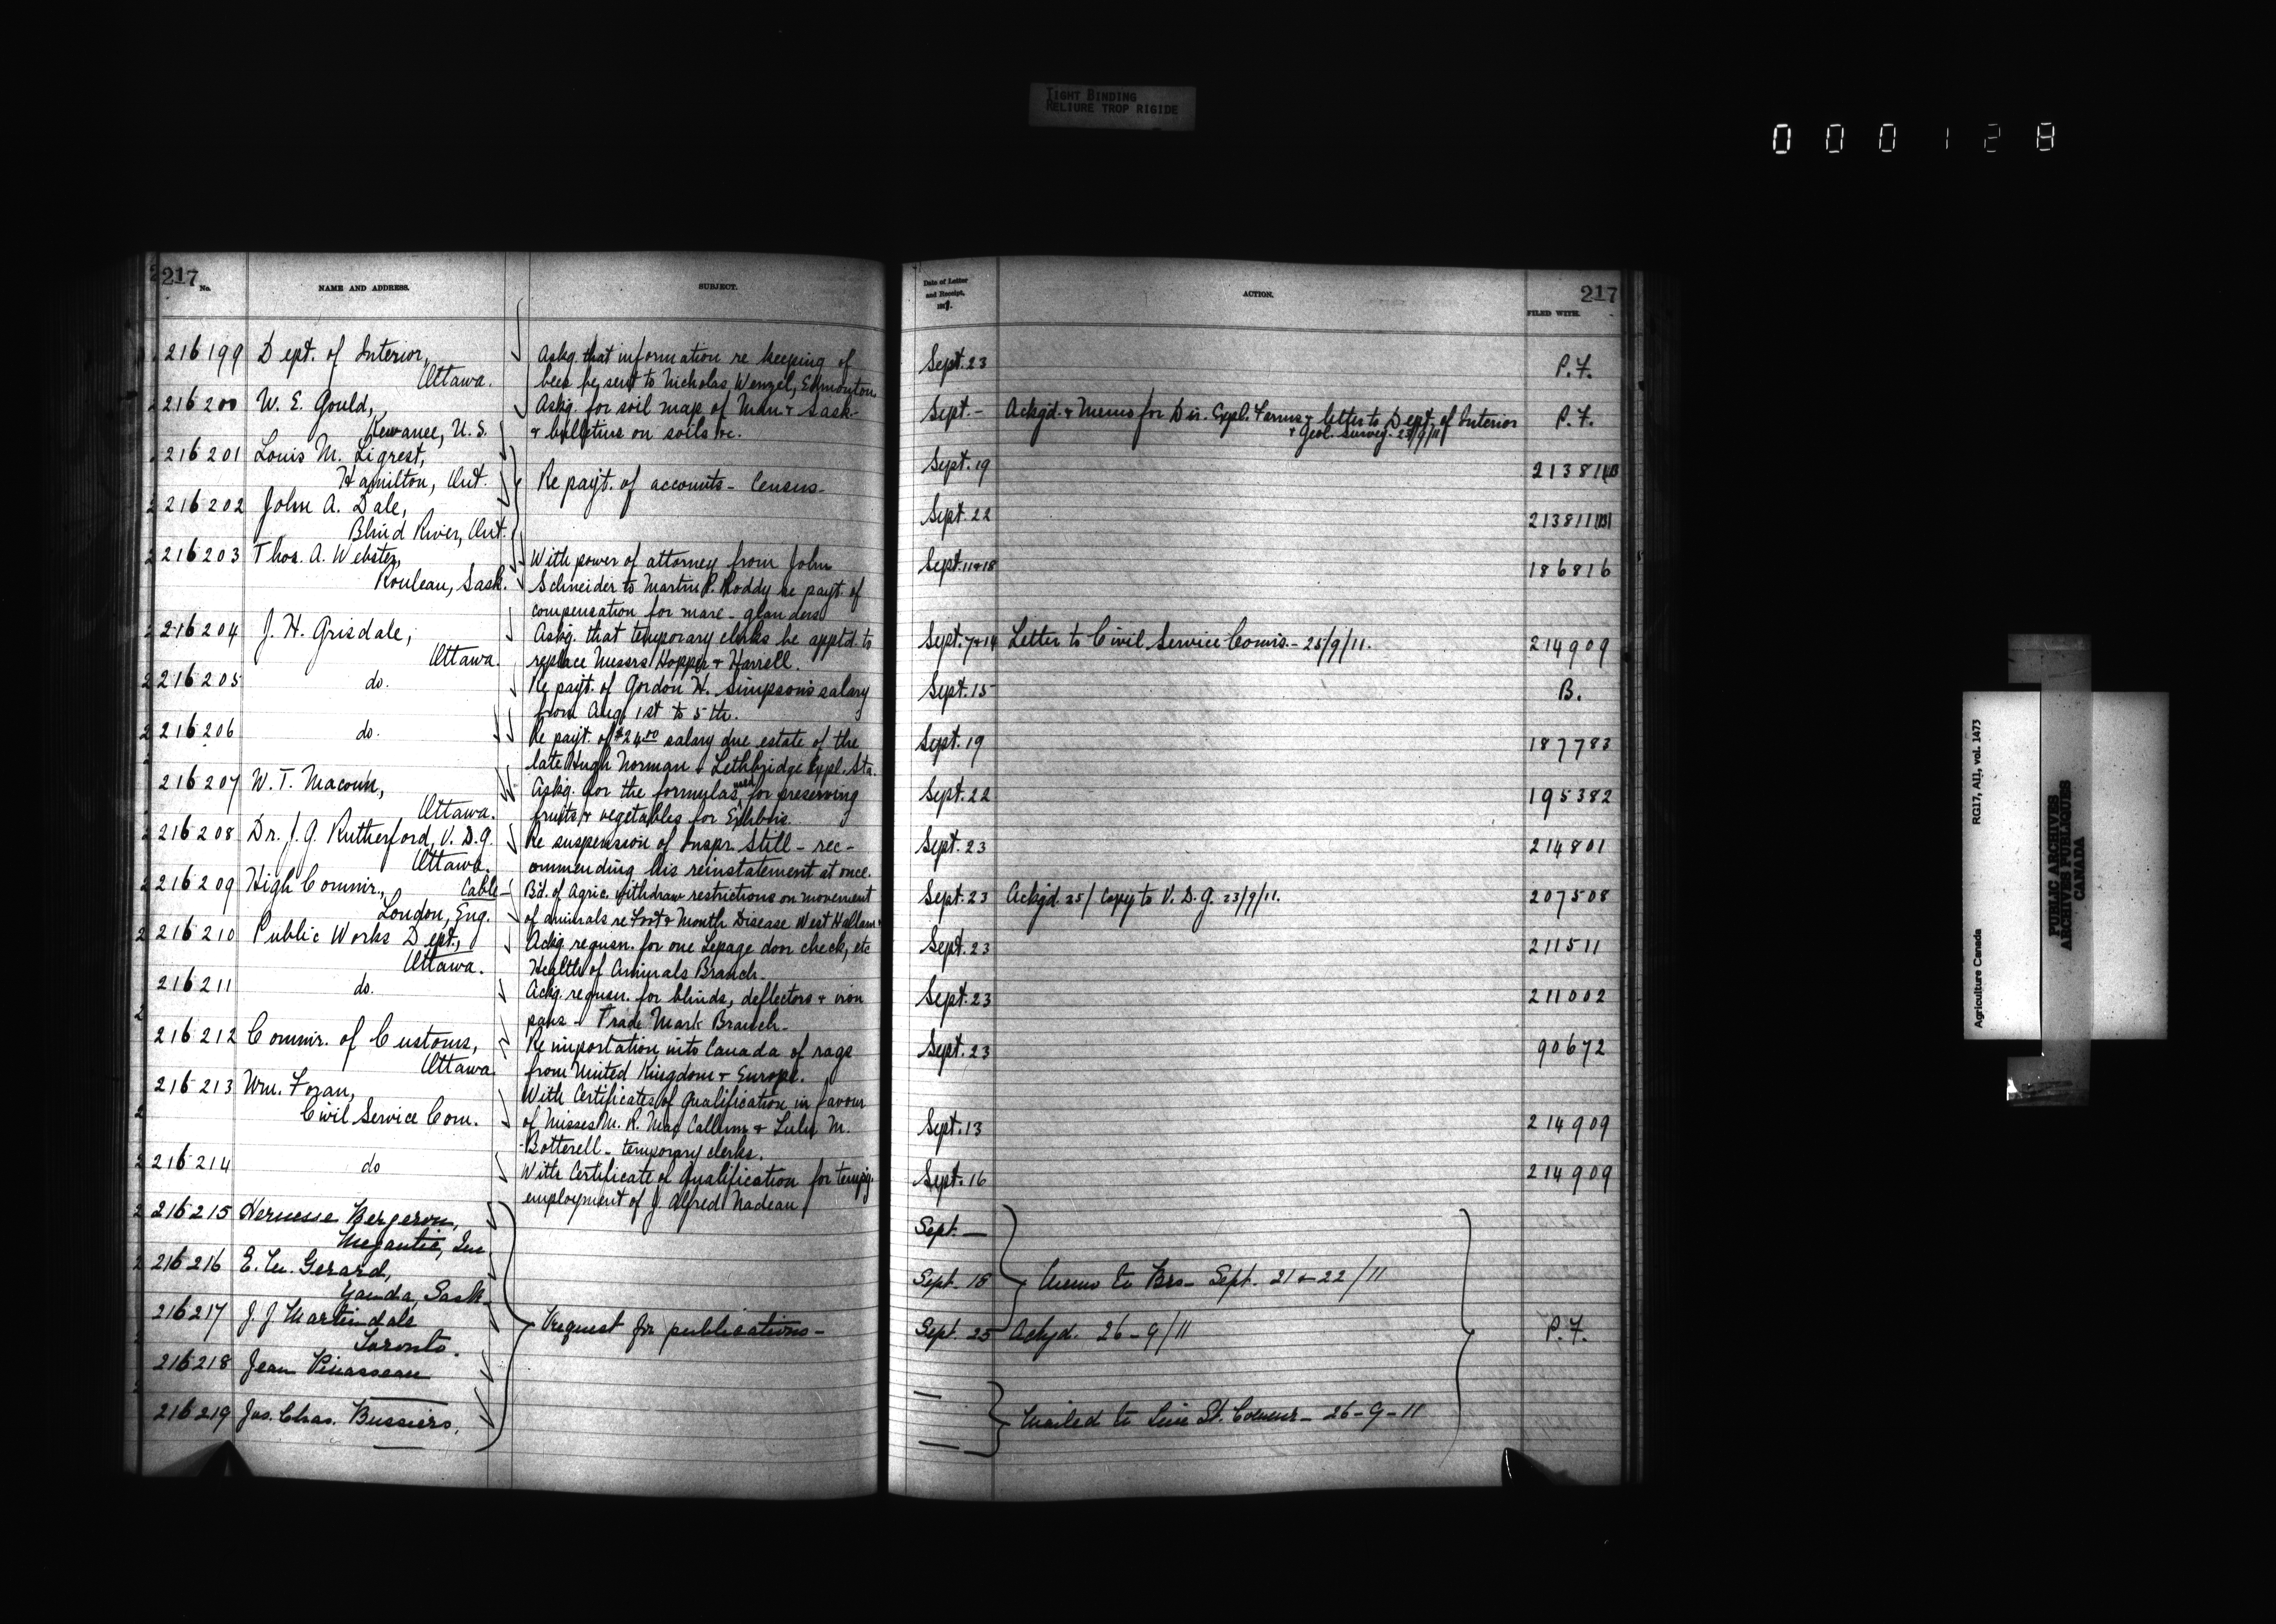 TIGHT BINDING
RELIURE TROP RIGIDE
000128
217
No. NAME AND ADDRESS. SUBJECT.
Date of Letter and Receipt, 191 ACTION. FILED WITH.
217
216199 Dept. of Interior, Askg. that information re keeping of Sept. 23 P.F.
Ottawa. bees be sent to Nicholas Wenzel, Edmonton.
216200 W. E. Gould, Askg. for soil map of Man & Sask- Sept. - Ackgd. & Memo for Dir. Expl. Farms & letter to Dept. of Interior P.F.
Kewanee, U.S. & bulletins on soils &c. & Geol. Survey. 25/9/11
216201 Louis M. Ligrest, Sept. 19 213811(B)
Hamilton, Ont. Re payt. of accounts - Census-
216202 John A. Dale, Sept. 22 213811(B)
Blind River, Ont.
216203 Thos. A. Webster, With power of attorney from John Sept. 11&18 186816
Rouleau, Sask. Schneider to Martin P. Roddy re payt. of
compensation for mare - glanders
216204 J. H. Grisdale, Askg. that temporary clerks be apptd. to Sept. 7&14 Letter to Civil Service Comrs. - 25/9/11. 214909
Ottawa. replace Messrs Hopper & Harrell.
216205 do. Re payt. of Gordon H. Simpson's salary Sept. 15 B.
from Aug. 1st to 5th.
216206 do. Re payt. of $24.00 salary due estate of the Sept. 19 187783
late Hugh Norman - Lethbridge Expl. Sta.
216207 W. T. Macoun, Askg. for the formulas used for preserving Sept. 22 195382
Ottawa. fruits & vegetables for Exhbns.
216208 Dr. J. G. Rutherford, V. D. G. Re suspension of Inspr. Still - rec- Sept. 23 214801
Ottawa. ommending his reinstatement at once.
216209 High Commr., Cable- Bd. of Agric. withdraw restrictions on movement Sept. 23 Ackgd. 25/ Copy to V. D. G. 23/9/11. 207508
London, Eng. of animals re Foot & Mouth Disease West Hallam.
216210 Public Works Dept., Ackg. requsn. for one Lepage door check, etc Sept. 23 211511
Ottawa. Health of Animals Branch.
216211 do. Ackg. requsn. for blinds, deflectors & iron Sept. 23 211002
pans - Trade Mark Branch-
216212 Commr. of Customs, Re importation into Canada of rags Sept. 23 90672
Ottawa. from United Kingdom & Europe.
216213 Wm. Foran, With Certificates of Qualification in favour
Civil Service Com. of Misses M. R. MacCallum & Lulu M. Sept. 13 214909
Botterell - temporary clerks.
216214 do With Certificate of Qualification for tempy. Sept. 16 214909
employment of J. Alfred Nadeau
216215 Bergeron, Sept. —
Megantic,
216216 E. Gerard, Sept. 18 Memo to Brs- Sept. 21 & 22/11
Sask.
216217 J. J. Martindale Request for publications- Sept. 25 Ackgd. 26-9/11 P.F.
Toronto.
216218 Jean
216219 Jos. Chas. Mailed to St. 26-9-11
Agriculture Canada RG17, AII, vol. 1473
PUBLIC ARCHIVES
ARCHIVES PUBLIQUES
CANADA